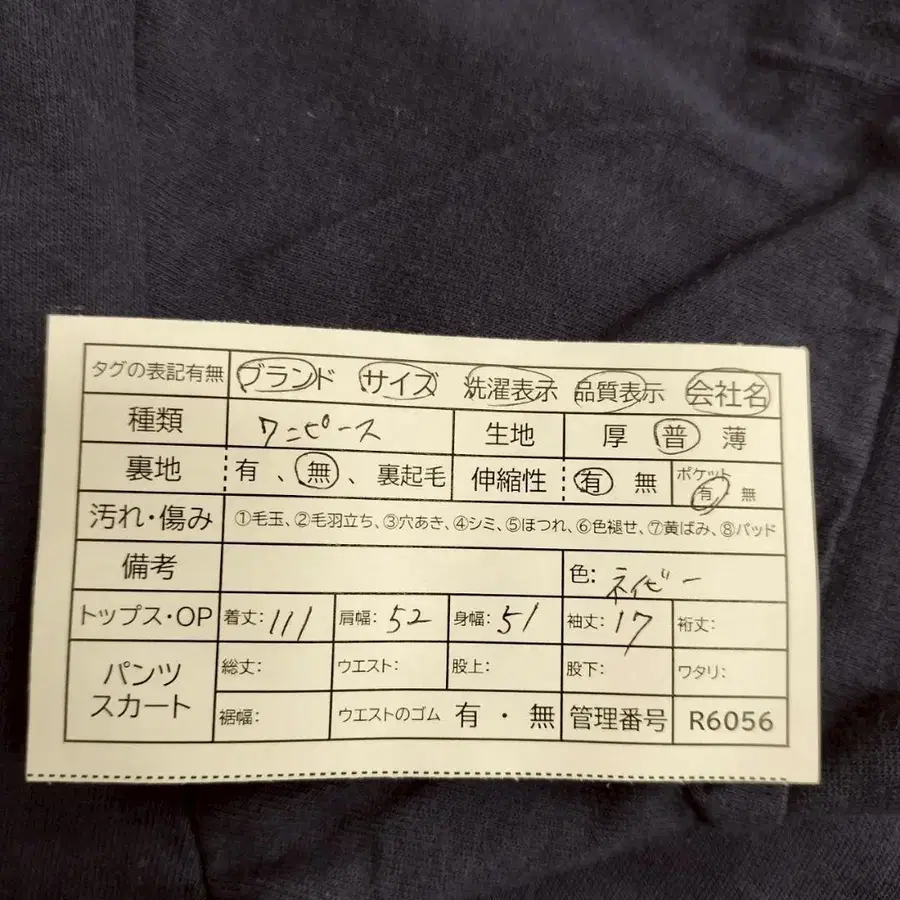 タグの表記有無 ブランド サイズ 洗濯表示 品質表示 会社名
種類 ワンピース 生地 厚 普 薄
裏地 有 、無 、裏起毛 伸縮性 有 無 ポケット 有 無
汚れ・傷み ①毛玉、②毛羽立ち、③穴あき、④シミ、⑤ほつれ、⑥色褪せ、⑦黄ばみ、⑧パッド
備考 色: ネイビー
トップス・OP 着丈:111 肩幅:52 身幅:51 袖丈:17 裄丈:
パンツ スカート 総丈: ウエスト: 股上: 股下: ワタリ:
裾幅: ウエストのゴム 有 ・ 無 管理番号 R6056